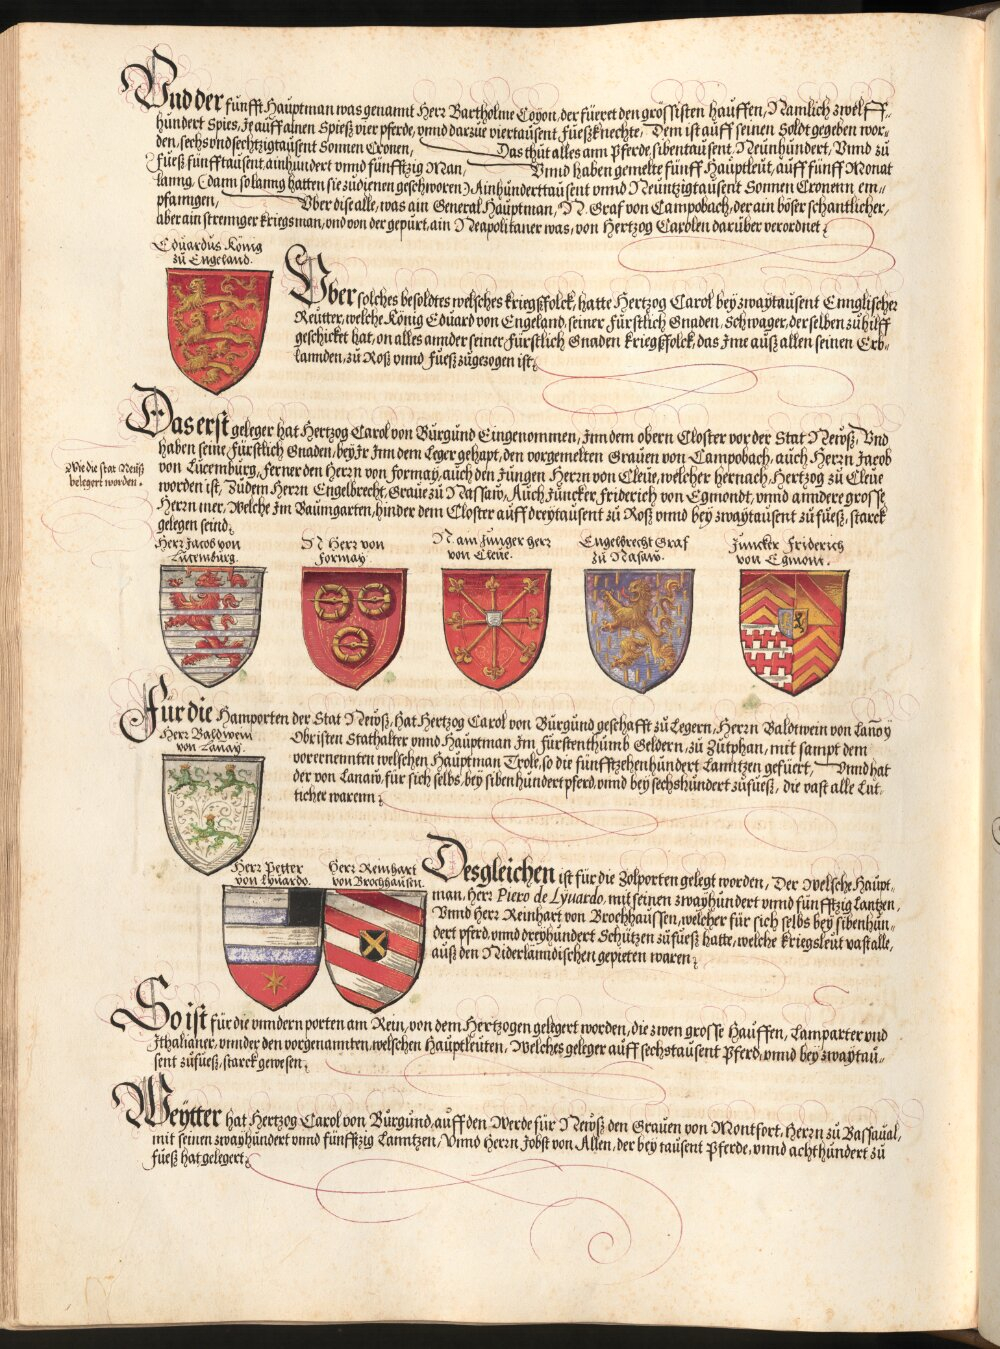 Und der fünfft Hauptman was genannt Herr Bartholme Coyon, der füeret den grössisten hauffen, Namlich zwelff-
hundert Spies, Je auff ainen Spieß vier pferde, vnnd darzue viertausent, füeßknechte, Dem ist auff seinen Soldt gegeben wor-
den, sechs vnd sechtzigtausent Sonnen Cronen, Das thüt alles ann Pferde sibentausent, Neünhundert, Vnnd zü
füeß fünfftausent, ainhundert vnnd fünfftzig Man, Vnnd haben gemelte fünff Hauptleüt, auff fünff Monat
lanng, (dann so lanng hatten sie zudienen geschworen) Ainhunderttausent vnnd Neüntzigtausent Sonnen Cronenn em-
pfanngen, Vber dise alle, was ain General Hauptman, N. Graf von Campobach, der ain böser schantlicher,
aber ain strennger kriegsman, vnd von der gepürt, ain Neapolitaner was, von Hertzog Carolen darüber verordnet.
Eduardus König
zü Engeland.
Vber solches besoldtes welsches kriegßfolck, hatte Hertzog Carol bey zwaytausent Ennglischer
Reütter, welche König Eduard von Engeland, seiner fürstlich Gnaden, Schwager, derselben zu hilff
geschickt hat, on alles annder seiner fürstlich Gnaden kriegßfolck das Jme auß allen seinen Erb-
lannden, zü Roß vnnd füeß zügezogen ist.
Das erst geleger hat Hertzog Carol von Burgund Eingenommen, Jnn dem obern Closter vor der Stat Neüß, Vnd
haben seine fürstlich Gnaden, bey Jr Jnn dem Leger gehapt, den vorgemelten Grauen von Campobach, auch Herrn Jacob
Wie die stat Neüß
belegert worden.
von Lücemburg, ferner den Herrn von formay, auch den Jungen Herrn von Cleüe, welcher hernach, Hertzog zü Cleüe
worden ist, Zudem Herrn Engelbrecht, Graue zü Nassaw, Auch Juncker, friderich von Egmondt, vnnd anndere grosse
Herrn mer, Welche Jm Baumgarten, hinder dem Closter auff dreytausent zü Roß vnnd bey zwaytausent zü füeß, starck
gelegen seind.
Herr Jacob von
Lücemburg.
N Herr von
formay
N am Junger herr
von Cleüe.
Engelbrecht Graf
zü Nasaw.
Juncker friderich
von Egmont.
Für die Hamporten der Stat Neüß, hat Hertzog Carol von Burgund geschafft zü Legern, Herrn Baldtwein von Lanoy
Herr Baldwein
von Lanay.
Obristen Stathalter vnnd Hauptman Jm fürstenthumb Geldern, zü Zütphan, mit sampt dem
vorernennten welschen Hauptman Trole, so die fünfftzehenhundert Lanntzen gefüert, Vnnd hat
der von Lanaw, für sich selbs, bey sibenhundert pferd, vnnd bey sechshundert züfüeß, die vast alle Lüt-
ticher warenn.
Herr Petter
von Lyuardo.
Herr Reinhart
von Brochhausen.
Desgleichen ist für die Zolporten gelegt worden, Der Welsche Haupt-
man, Herr Piero de Lyuardo, mit seinen zwayhundert vnnd fünfftzig Lantzen,
Vnnd Herr Reinhart von Brochhaussen, welcher für sich selbs bey sibenhun-
dert pferd, vnnd dreyhundert Schützen zü füeß hatte, welche kriegsleüt vast alle,
auß den Niderlanndischen gepieten waren.
So ist für die vnndern porten am Rein, von dem Hertzogen gelegert worden, die zwen grosse Hauffen, Lamparter vnd
Jthalianer, vnnder den vorgenannten, welschen Hauptleüten, Welches geleger auff sechstausent Pferd, vnnd bey zwaytau-
sent züfüeß, starck gewesen.
Weytter hat Hertzog Carol von Burgund, auff den Werde für Neüß den Grauen von Montfort, Herrn zü Bassaual,
mit seinen zwayhundert vnnd fünfftzig Lanntzen, Vnnd Herrn Jobst von Allen, der bey tausent Pferde, vnnd achthundert zü
füeß hat gelegert.